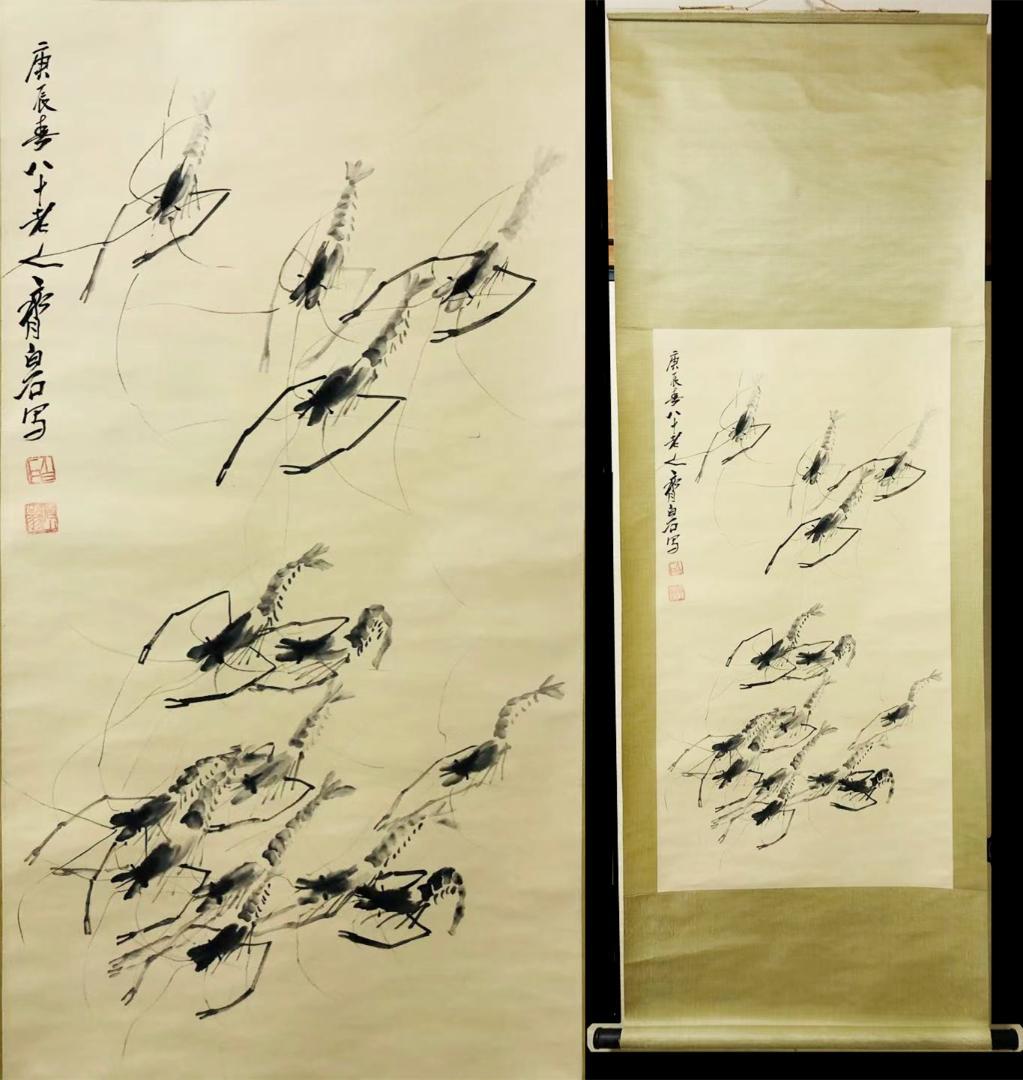 庚辰春八十老人齊白石写
庚辰春八十老人齊白石写